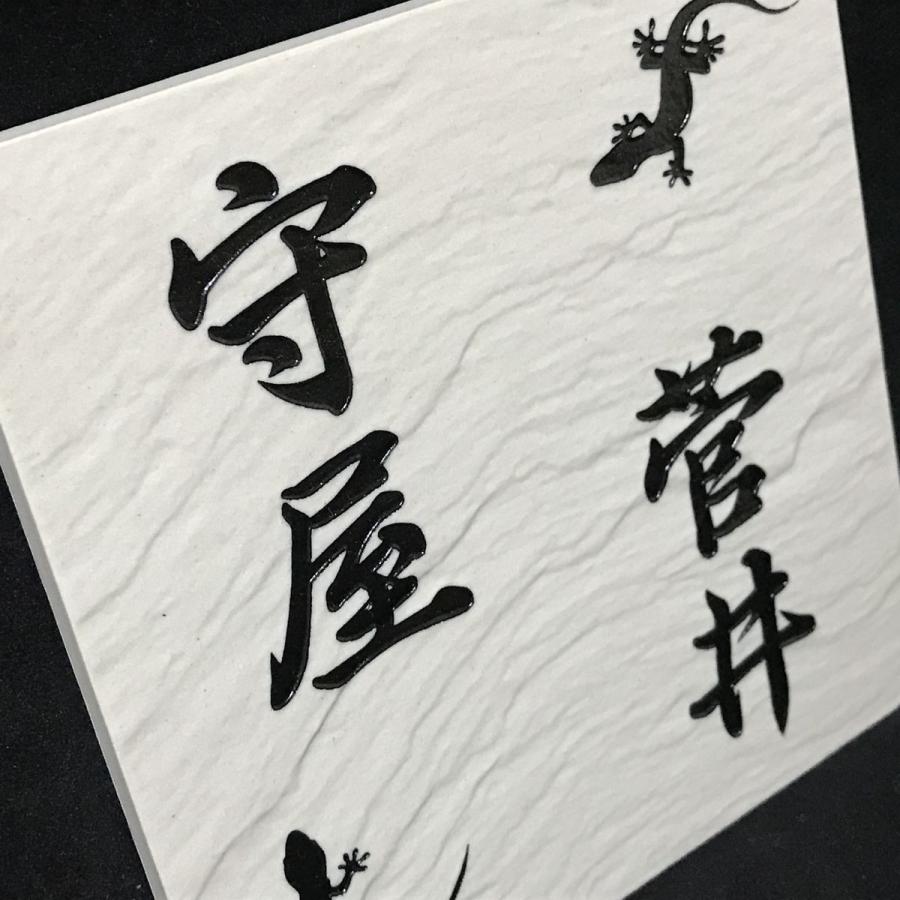 菅井
守屋